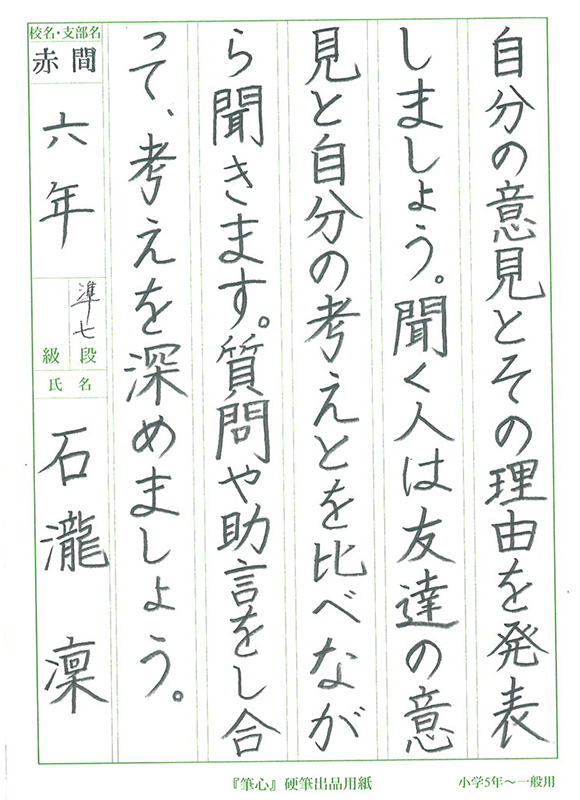 自分の意見とその理由を発表
しましょう。聞く人は友達の意
見と自分の考えとを比べなが
ら聞きます。質問や助言をし合
って、考えを深めましょう。
校名・支部名
赤間
六年
準七
級段
氏名
石瀧凜
『筆心』硬筆出品用紙
小学5年～一般用